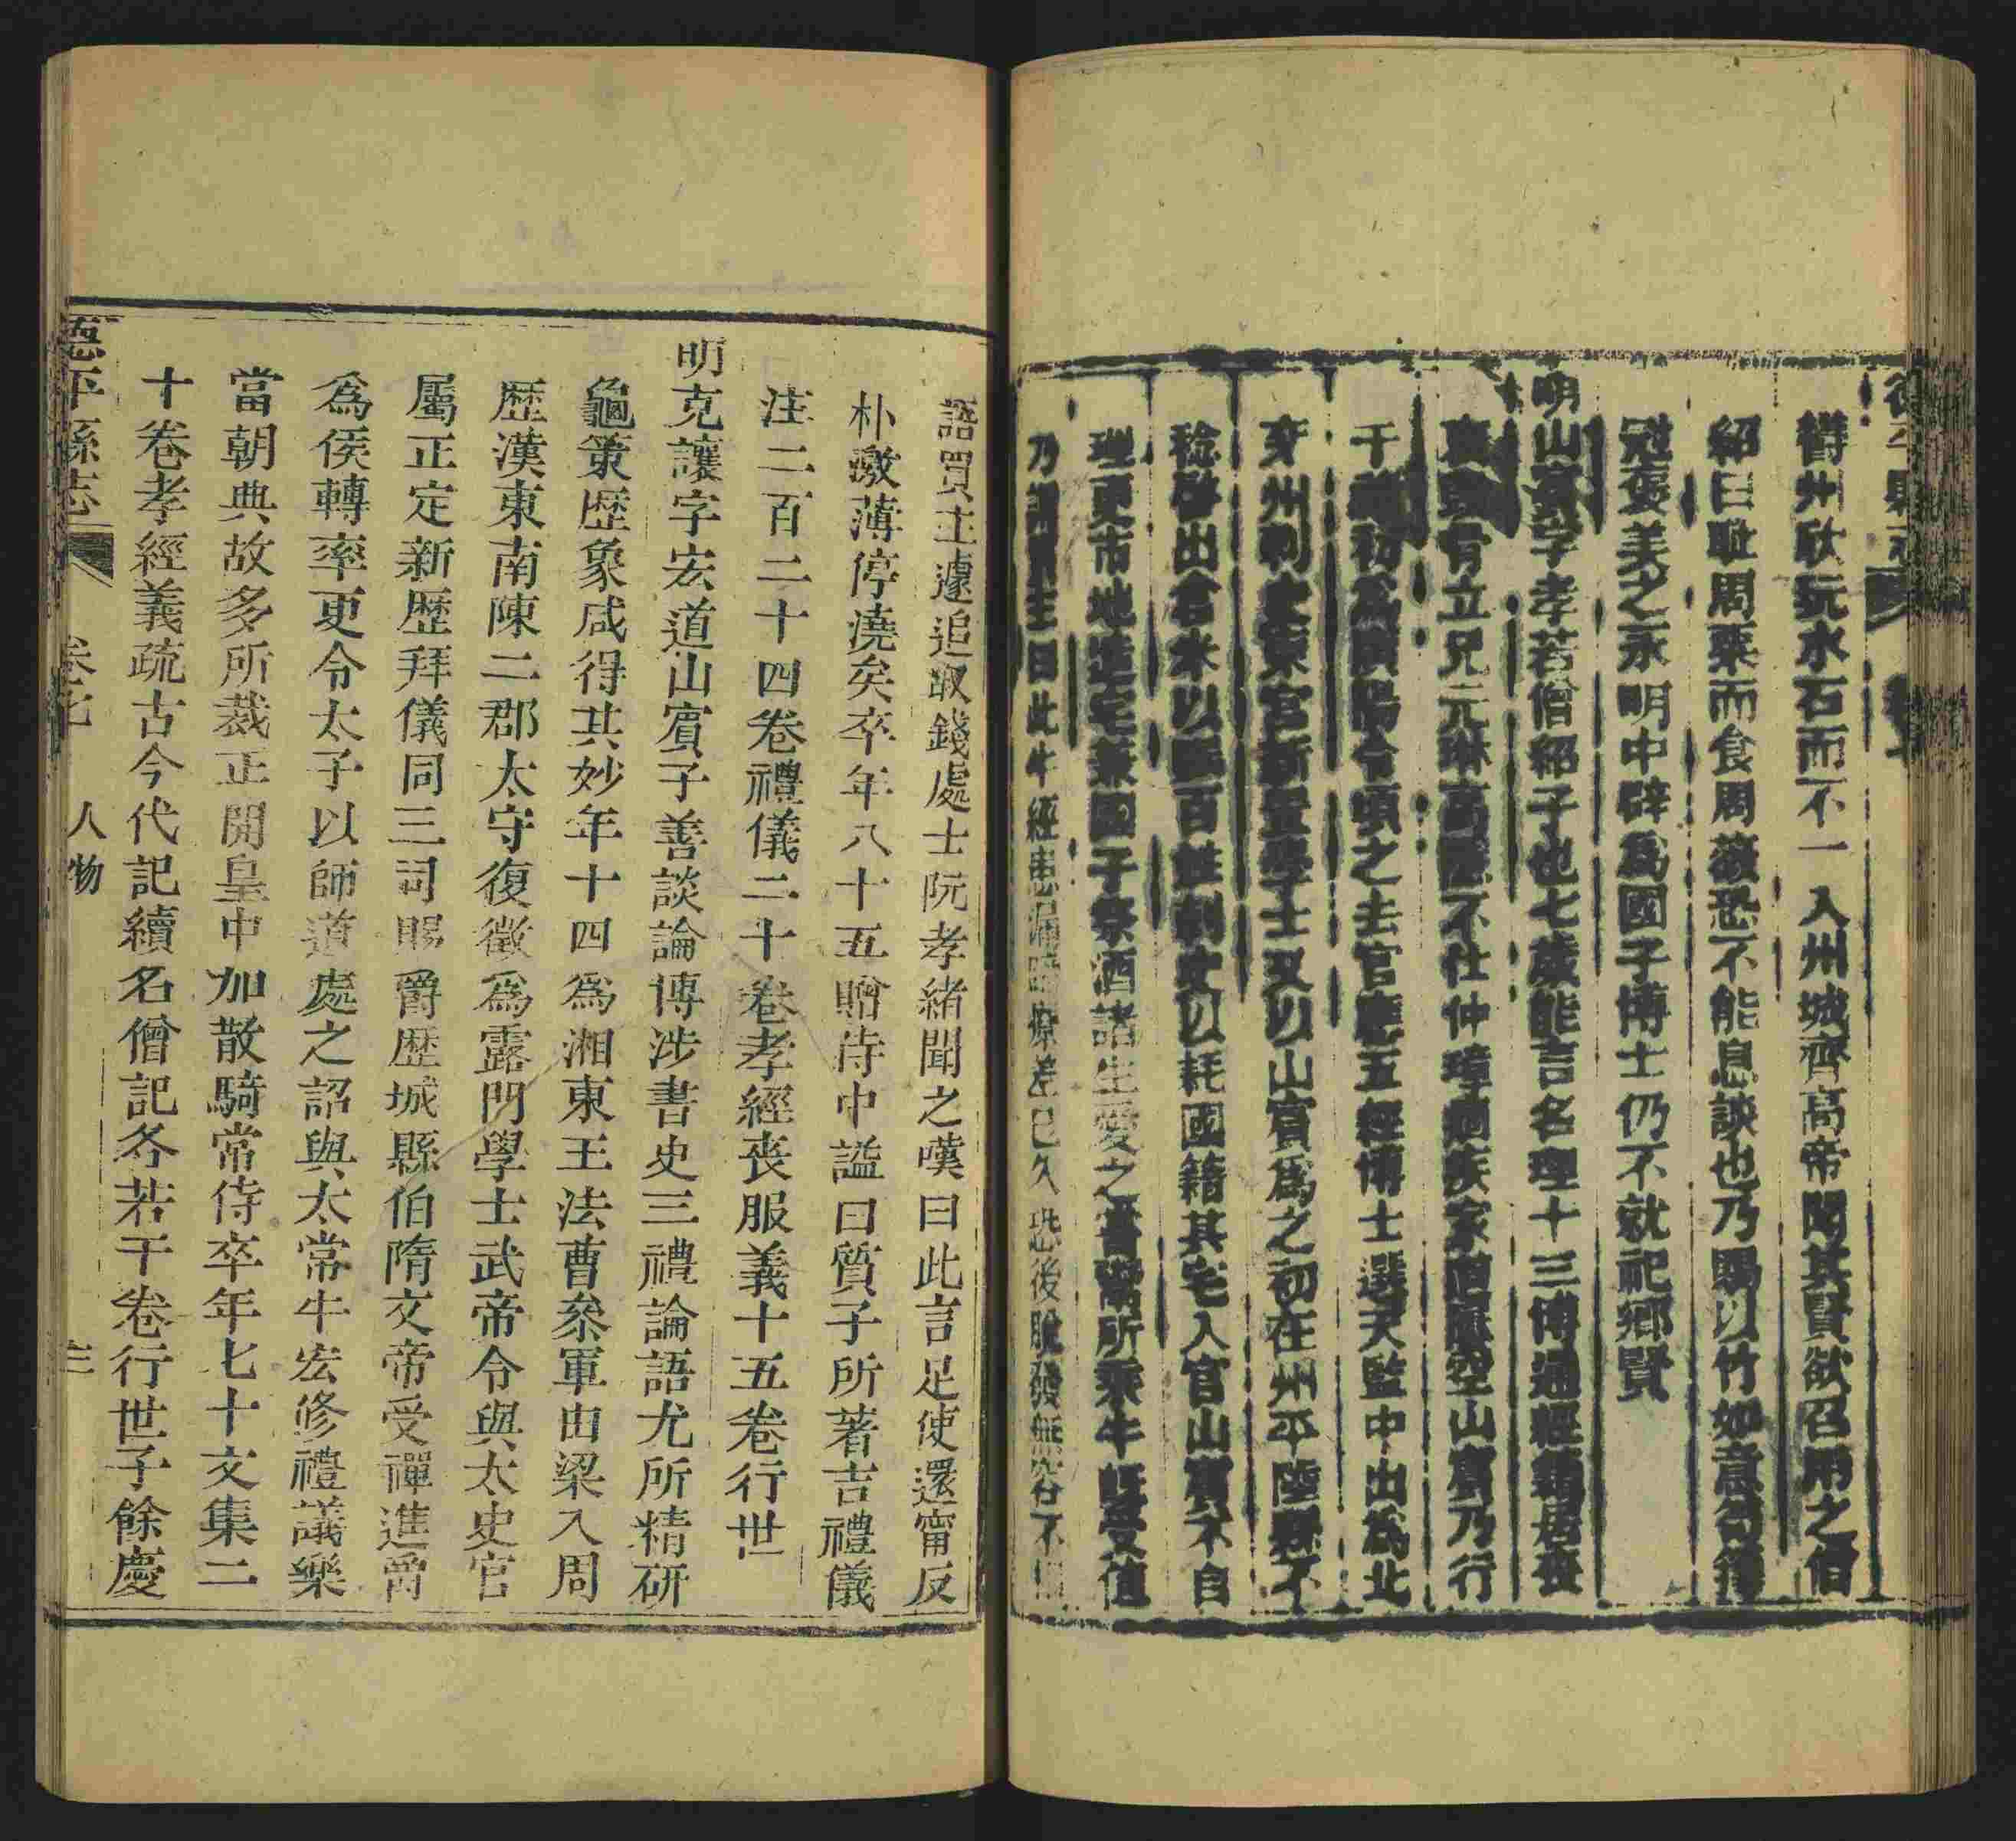 鬱州欣玩水石而不一入州城齊高帝聞其賢欲召用之僧
紹曰恥周粟而食周薇恐不能息談也乃賜以竹如意筍籜
冠褒美之永明中辟爲國子博士仍不就祀鄉賢
明山賓字孝若僧紹子也七歲能言名理十三博通經籍居喪
有立兄元琳高隱不仕仲璋痼疾家道屢空山賓乃行
干祿初爲廣陽令頃之去官應五經博士選天監中出爲北
兗州刺史東宮新置學士又以山賓爲之初在州平陸縣不
稔啓出倉米以賑百姓刺史以耗國籍其宅入官山賓不自
理更市地造宅兼國子祭酒諸生愛之嘗鬻所乘牛旣受值
乃謂買主曰此牛經患漏蹄療差已久恐後脫發無容不
語買主遽追取錢處士阮孝緒聞之嘆曰此言足使還甯反
朴激薄停澆矣卒年八十五贈侍中謚曰質子所著吉禮儀
注二百二十四卷禮儀二十卷孝經喪服義十五卷行世
明克讓字宏道山賓子善談論博涉書史三禮論語尤所精研
龜策歴象咸得其妙年十四爲湘東王法曹叅軍由梁入周
歴漢東南陳二郡太守復徵爲露門學士武帝令與太史官
屬正定新歴拜儀同三司賜爵歴城縣伯隋文帝受禪進爵
爲侯轉率更令太子以師道處之詔與太常牛宏修禮議樂
當朝典故多所裁正開皇中加散騎常侍卒年七十文集二
十卷孝經義疏古今代記續名僧記各若干卷行世子餘慶
德平縣志 卷七 人物 三